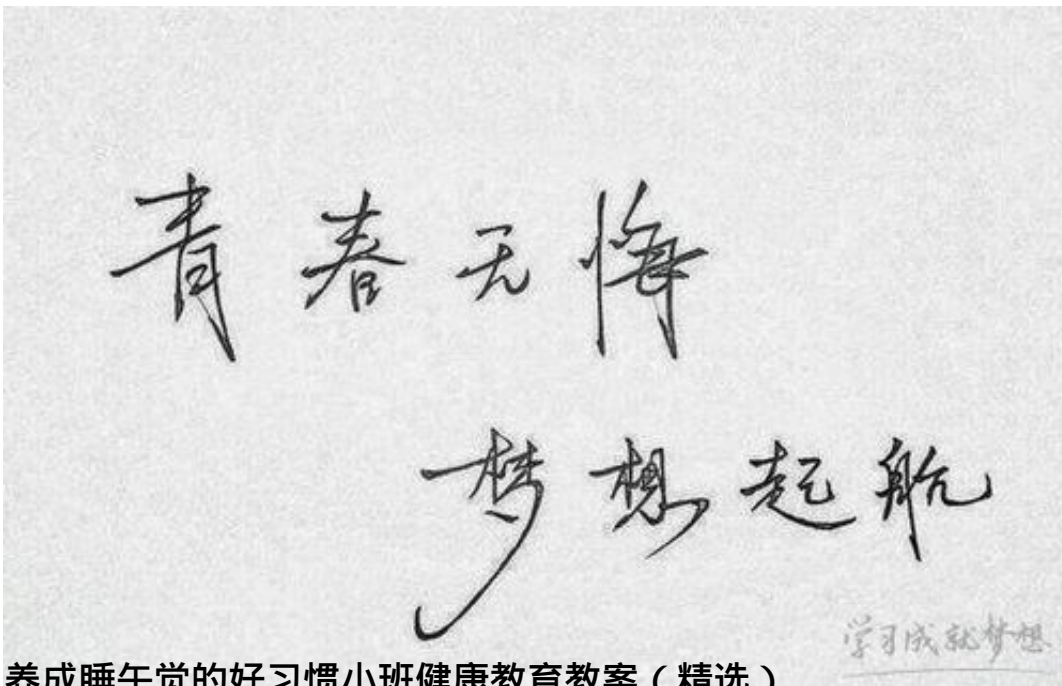 青春无悔
梦想起航
学习成就梦想
养成睡午觉的好习惯小班健康教育教案（精选）